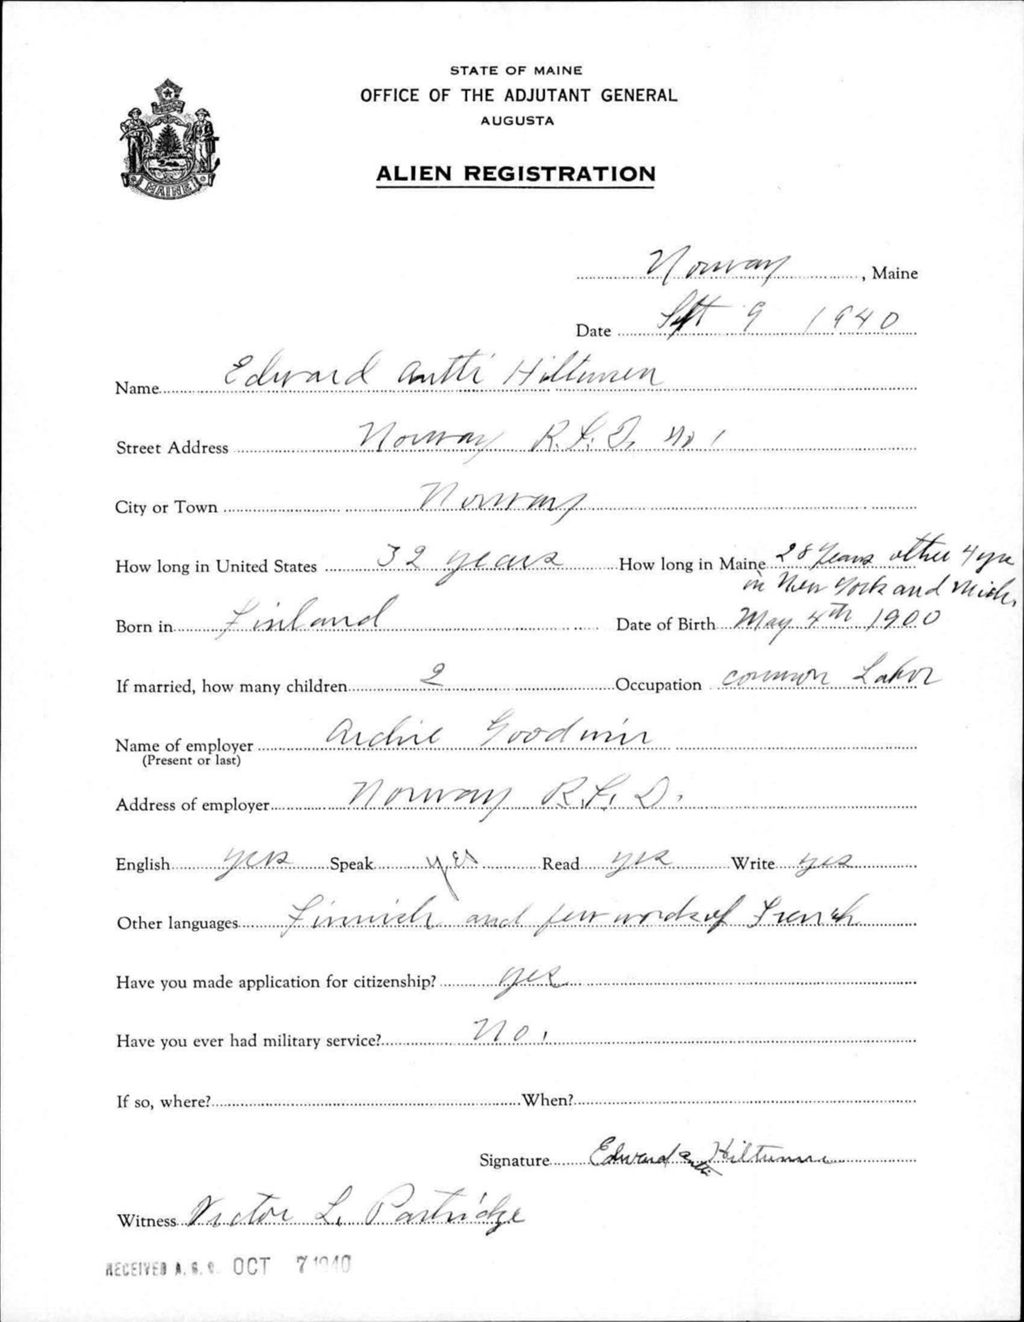 STATE OF MAINE
OFFICE OF THE ADJUTANT GENERAL
AUGUSTA
ALIEN REGISTRATION
MAINE
Norway, Maine
Date Sept 9 1940
Name Edward Antti Hiltunen
Street Address Norway R.F.D. No 1
City or Town Norway
How long in United States 32 years How long in Maine 28 Years other 4 yrs
in New York and Mich.
Born in Finland Date of Birth May 4th 1900
If married, how many children 2 Occupation common Labor
Name of employer Archie Goodwin
(Present or last)
Address of employer Norway R.F.D.
English yes Speak yes Read yes Write yes
Other languages Finnish and few words of French
Have you made application for citizenship? yes
Have you ever had military service? No.
If so, where? When?
Signature Edward Antti Hiltunen
Witness Victor L. Partridge
RECEIVED A.G.O. OCT 7 1940